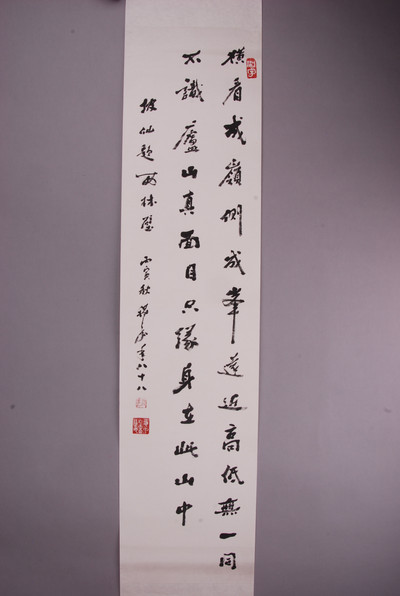 横看成嶺側成峯遠近高低無一同
不識廬山真面目只緣身在此山中
坡仙題西林壁 丙寅秋 年八十八